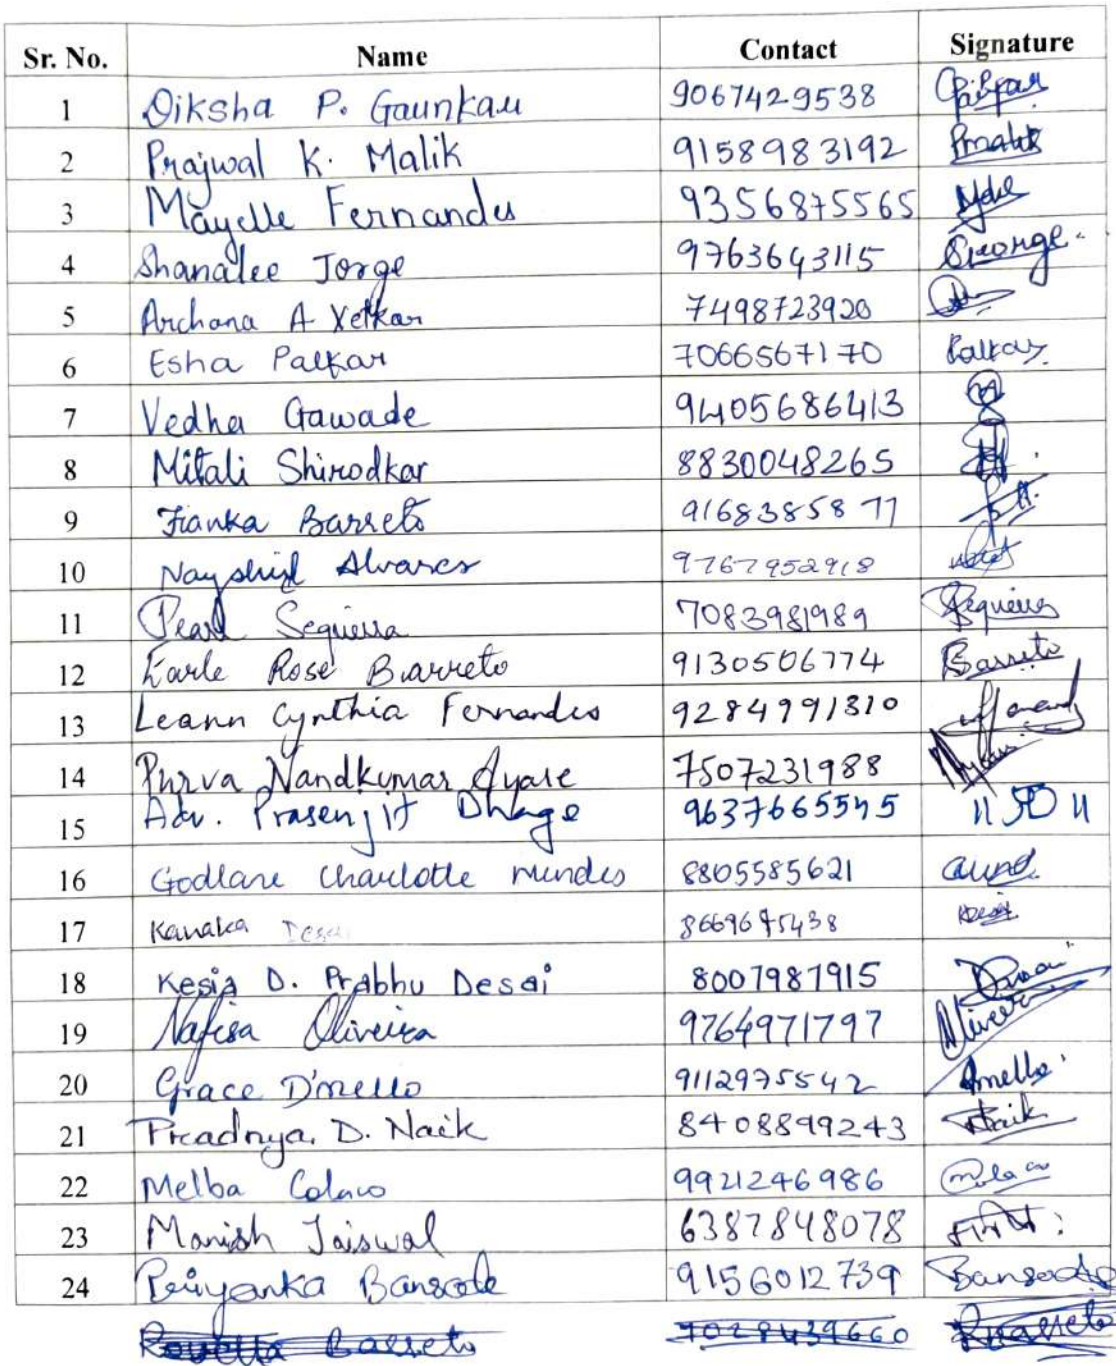 Sr. No. Name Contact Signature
1 Diksha P. Gaunkar 9067429538
2 Prajwal K. Malik 9158983192 Pmalik
3 Mayelle Fernandes 9356875565
4 Shanalee Jorge 9763643115 SJeorge
5 Archana A Yetkar 7498723920
6 Esha Palkar 7066567170 Palkar
7 Vedha Gawade 9405686413
8 Mitali Shirodkar 8830048265
9 Fianka Barreto 9168385877
10 Alvares 9767952918
11 Pearl Sequeira 7083981989 Sequeira
12 Karle Rose Barreto 9130506774 Barreto
13 Leann Cynthia Fernandes 9284991310
14 Purva Nandkumar Ayare 7507231988
15 Adv. Prasenjit Dhage 9637665545
16 Godlane Charlotte Mendes 8805585621
17 Kanaka Desai 8669675438
18 Kesia D. Prabhu Desai 8007987915
19 Nafisa Oliveira 9764971797
20 Grace D'mello 9112975542 Dmello
21 Pradnya. D. Naik 8408899243 Naik
22 Melba Colaco 9921246986
23 Manish Jaiswal 6387848078
24 Priyanka Bansode 9156012739 Bansode
Barreto 7028439660